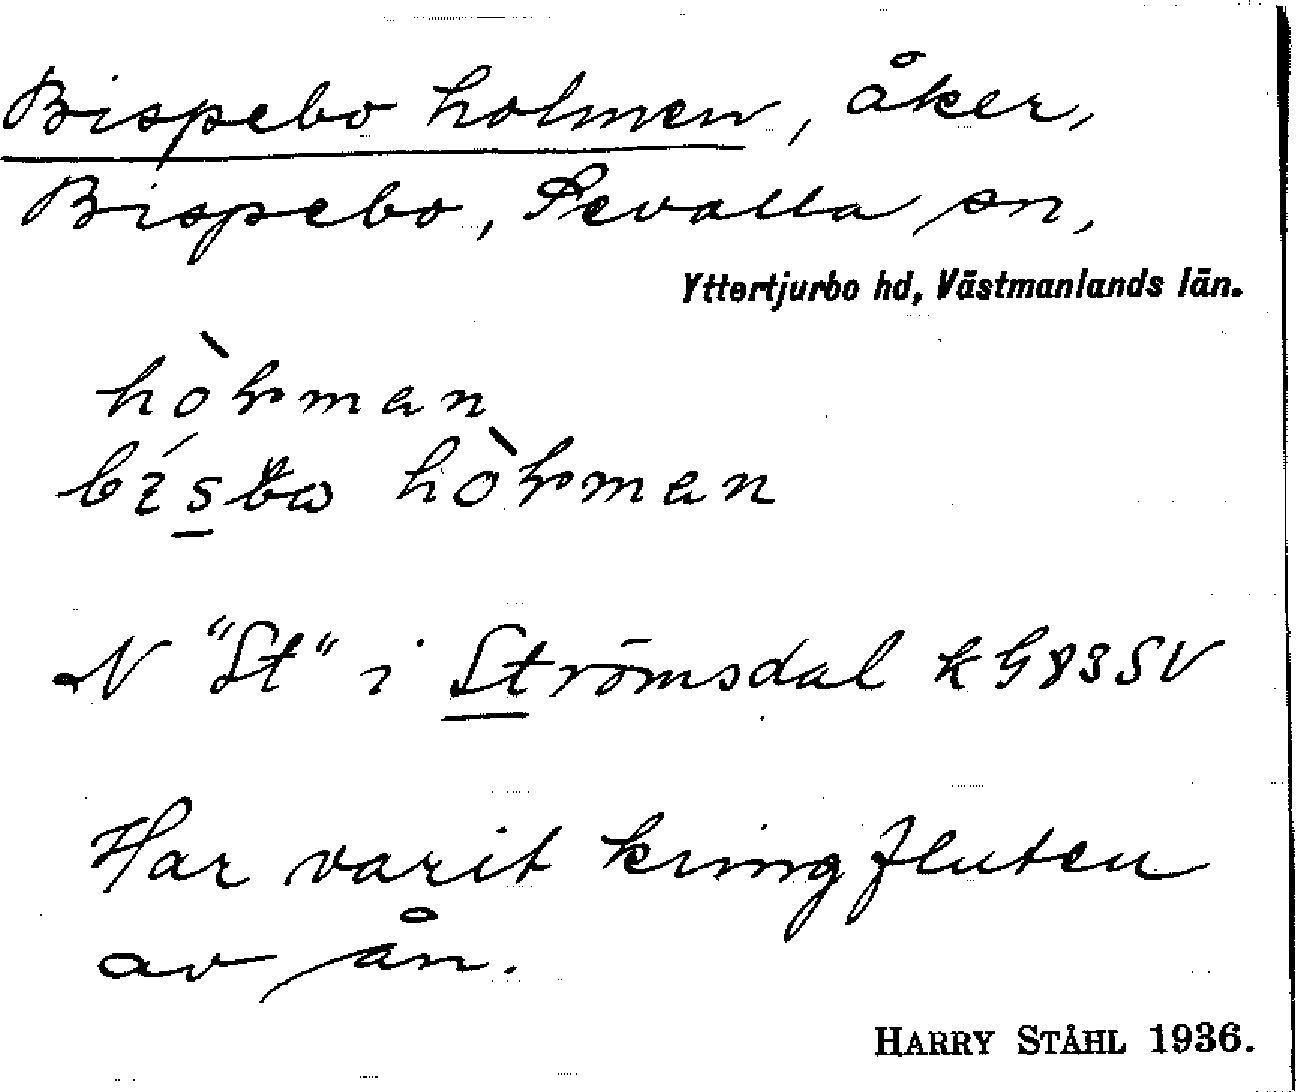 Bispebo holmen, åker,
Bispebo, Sevalla sn,
Yttertjurbo hd, Västmanlands län.
hòḷman
bísbω hòḷman
N "St" i Strömsdal k G 83 SV
Har varit kringfluten
av ån.
HARRY STÅHL 1936.